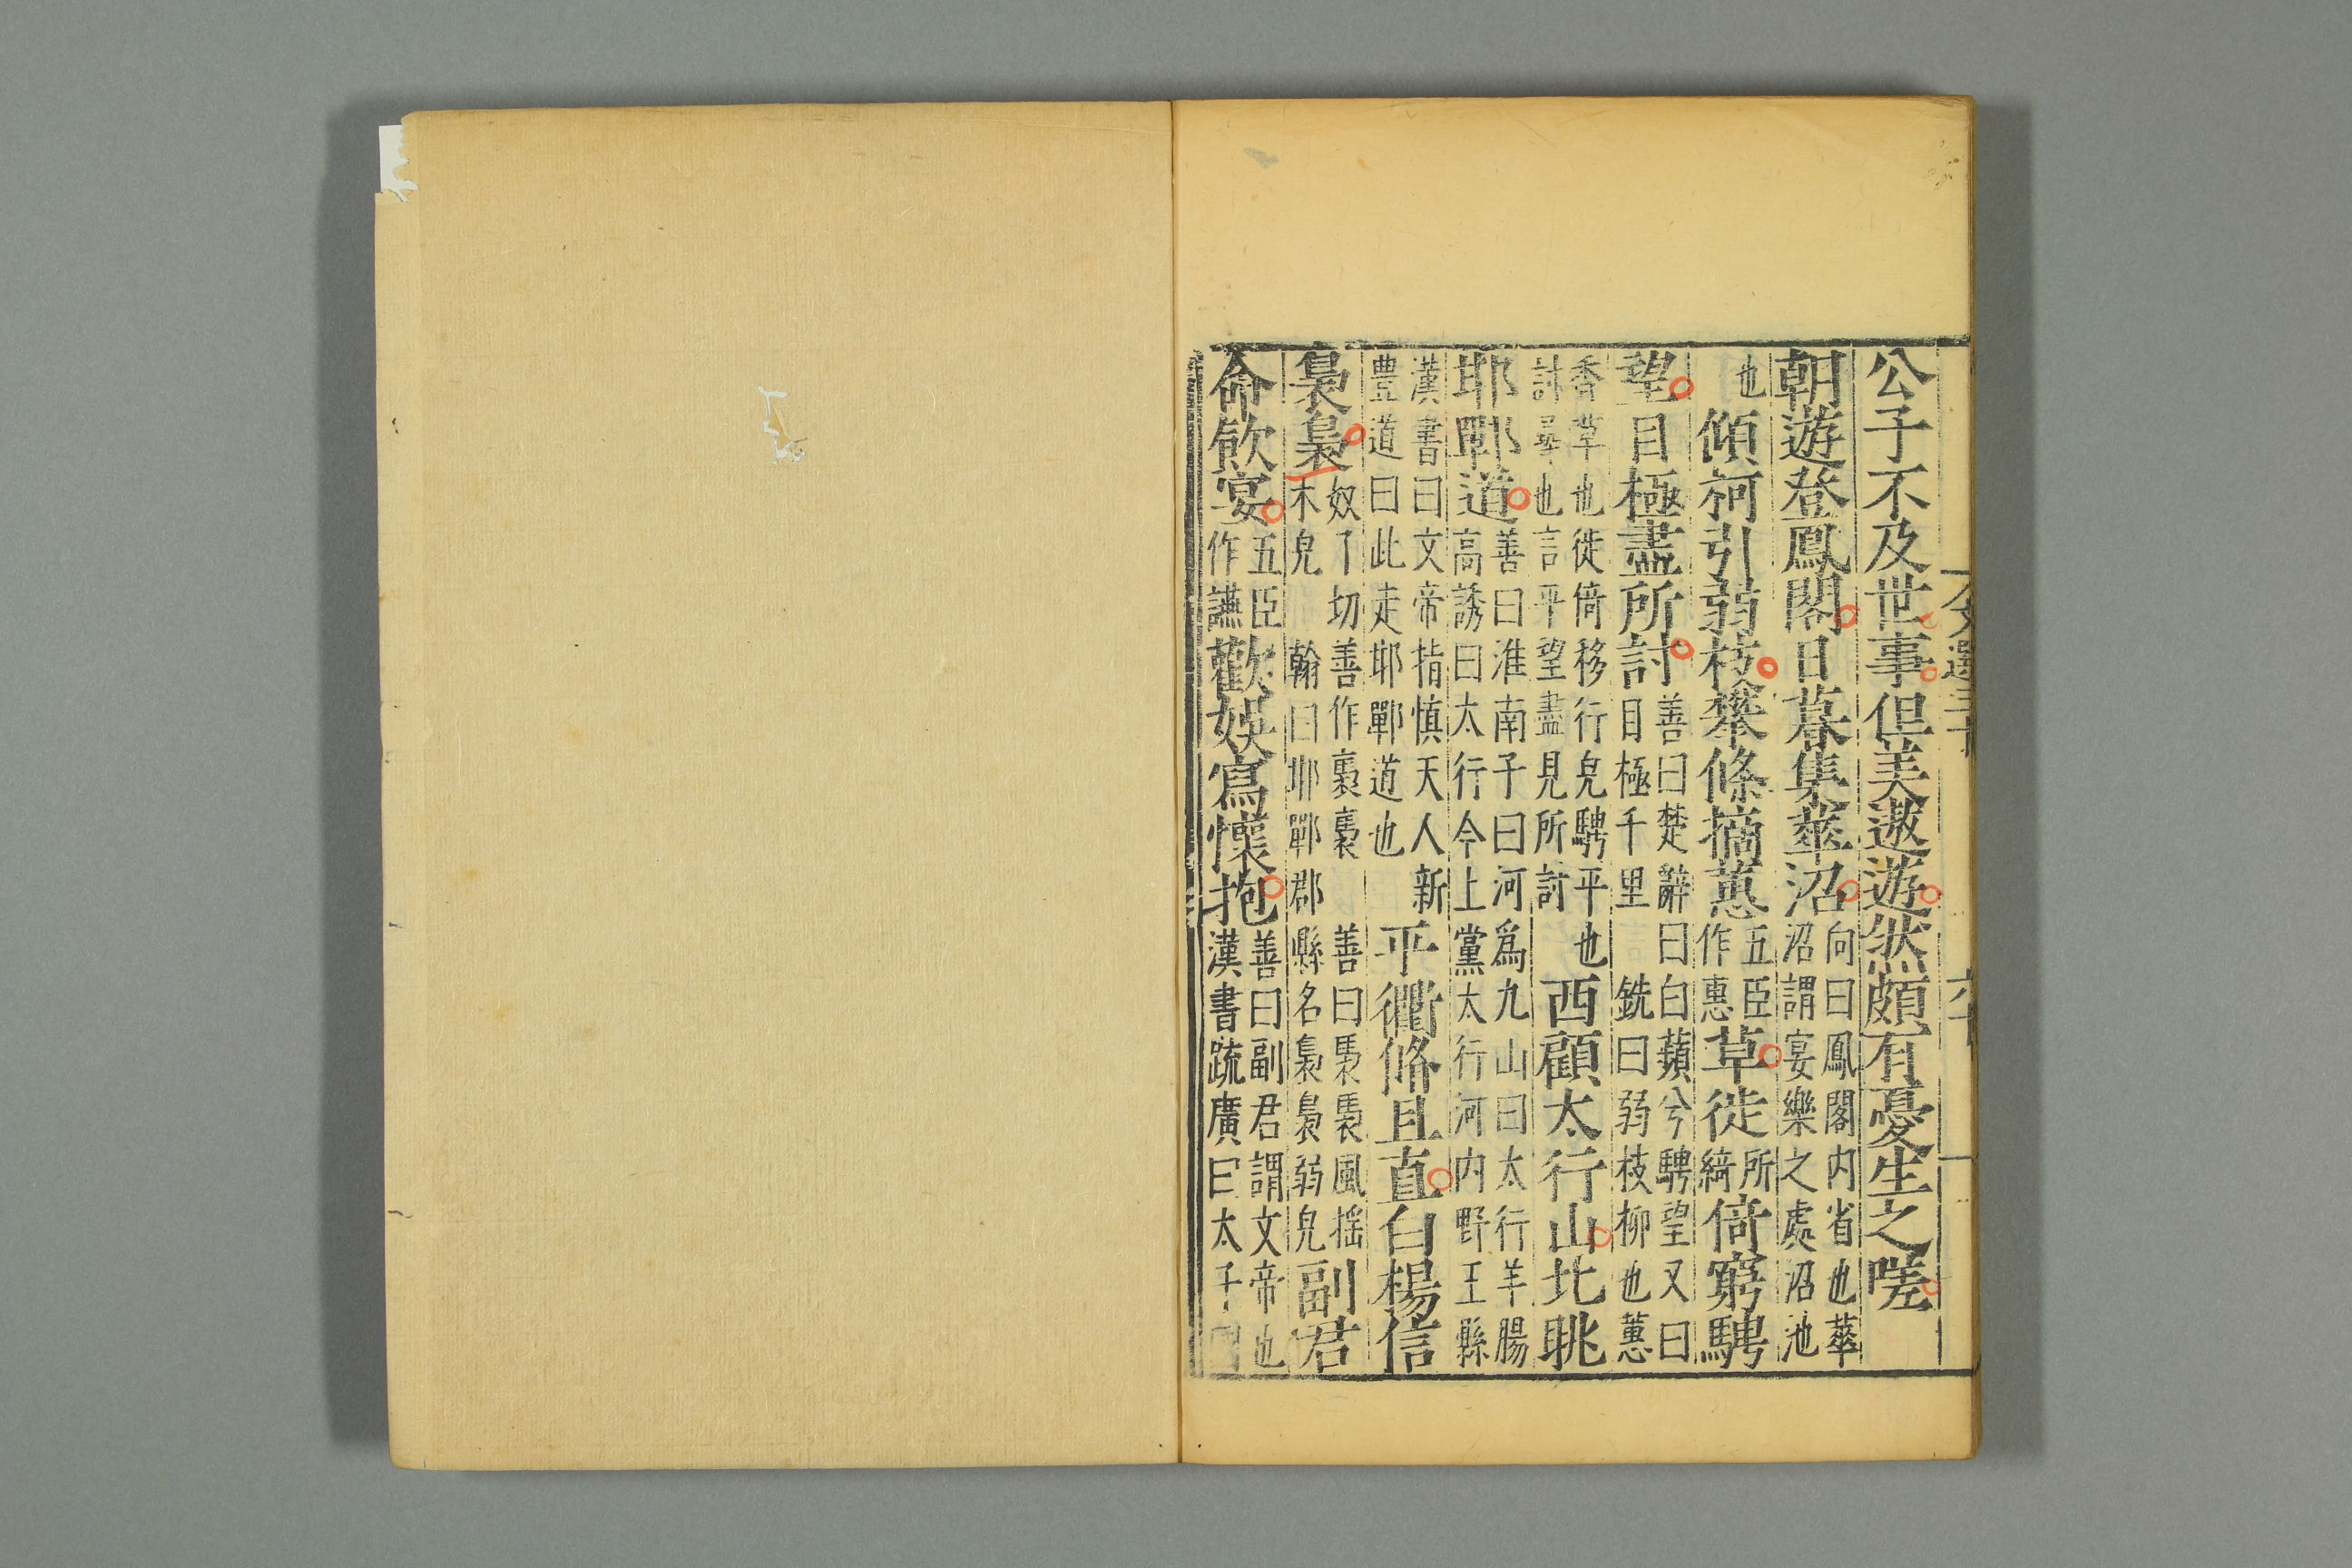 文選三十 六十
公子不及世事但美遨遊然頗有憂生之嗟
朝遊登鳳閣日暮集華沼向曰鳳閣内省也華沼謂宴樂之處沼池
也傾柯引弱枝攀條摘蕙五臣作惠草徙所綺倚窮騁
望目極盡所討善曰楚辭曰白蘋兮騁望又曰目極千里銑曰弱枝柳也蕙
香草也徙倚移行皃騁平也討尋也言平望盡見所討西顧太行山北眺
耶鄲道善曰淮南子曰河爲九山曰太行羊腸高誘曰太行今上黨太行河内野王縣
漢書曰文帝指慎天人新豊道曰此走耶鄲道也平衢脩且直白楊信
裊裊奴了切善作褭褭木皃善曰褭褭風摇翰曰耶鄲郡縣名裊裊弱皃副君
命飲宴五臣作讌歡娛寫懷抱善曰副君謂文帝也漢書疏廣曰太子國